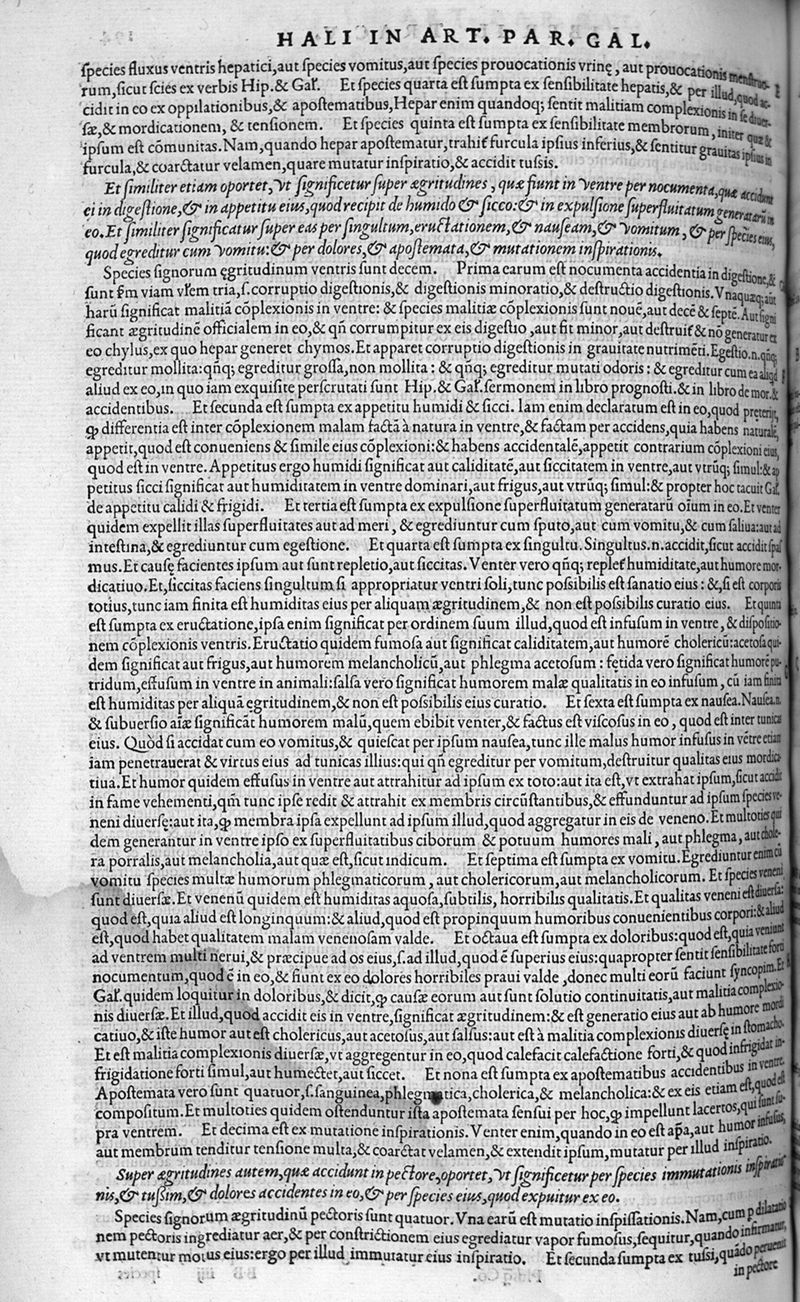 HALI IN ART. PAR. GAL.
species fluxus ventris hepatici, aut species vomitus, aut species prouocationis vrinę, aut prouocationis menstruo-
rum, sicut scies ex verbis Hip. & Gal. Et species quarta est sumpta ex sensibilitate hepatis, & per illud, quod ac-
cidit in eo ex oppilationibus, & apostematibus, Hepar enim quandoq; sentit malitiam complexionis in se diuer-
sæ, & mordicationem, & tensionem. Et species quinta est sumpta ex sensibilitate membrorum, initer quæ &
ipsum est cõmunitas. Nam, quando hepar apostematur, trahit furcula ipsius inferius, & sentitur grauitas ipsius in
furcula, & coarctatur velamen, quare mutatur inspiratio, & accidit tussis.
Et similiter etiam oportet, vt significetur super ægritudines, quæ fiunt in ventre per nocumenta, quæ accidunt
ei in digestione, & in appetitu eius, quod recipit de humido & sicco: & in expulsione superfluitatum generatarũ in
eo. Et similiter significatur super eas per singultum, eructationem, & nauseam, & vomitum, & per species eius,
quod egreditur cum vomitu: & per dolores, & apostemata, & mutationem inspirationis.
Species signorum ęgritudinum ventris sunt decem. Prima earum est nocumenta accidentia in digestione, &
sunt fm viam vlem tria, s. corruptio digestionis, & digestionis minoratio, & destructio digestionis. Vnaquæq; aut
harũ significat malitiã cõplexionis in ventre: & species malitiæ cõplexionis sunt nouẽ, aut decẽ & septẽ. Aut signi
ficant ægritudinẽ officialem in eo, & qñ corrumpitur ex eis digestio, aut fit minor, aut destruit & nõ generatur ex
eo chylus, ex quo hepar generet chymos. Et apparet corruptio digestionis in grauitate nutrimẽti. Egestio. n. qñq;
egreditur mollita: qñq; egreditur grossa, non mollita: & qñq; egreditur mutati odoris: & egreditur cum ea aliqd
aliud ex eo, in quo iam exquisite perscrutati sunt Hip. & Gal. sermonem in libro prognosti. & in libro de mor. &
accidentibus. Et secunda est sumpta ex appetitu humidi & sicci. Iam enim declaratum est in eo, quod preterijt,
ꝙ differentia est inter cõplexionem malam factã à natura in ventre, & factam per accidens, quia habens naturalẽ,
appetit, quod est conueniens & simile eius cõplexioni: & habens accidentalẽ, appetit contrarium cõplexioni eius,
quod est in ventre. Appetitus ergo humidi significat aut caliditatẽ, aut siccitatem in ventre, aut vtrũq; simul: & ap
petitus sicci significat aut humiditatem in ventre dominari, aut frigus, aut vtrũq; simul: & propter hoc tacuit Gal.
de appetitu calidi & frigidi. Et tertia est sumpta ex expulsione superfluitatum generatarũ oium in eo. Et venter
quidem expellit illas superfluitates aut ad meri, & egrediuntur cum sputo, aut cum vomitu, & cum saliua: aut ad
intestina, & egrediuntur cum egestione. Et quarta est sumpta ex singultu. Singultus. n. accidit, sicut accidit spas
mus. Et causę facientes ipsum aut sunt repletio, aut siccitas. Venter vero qñq; replet humiditate, aut humore mor-
dicatiuo. Et, siccitas faciens singultum si appropriatur ventri soli, tunc possibilis est sanatio eius: &, si est corporis
totius, tunc iam finita est humiditas eius per aliquam ægritudinem, & non est possibilis curatio eius. Et quinta
est sumpta ex eructatione, ipsa enim significat per ordinem suum illud, quod est infusum in ventre, & dispositio-
nem cõplexionis ventris. Eructatio quidem fumosa aut significat caliditatem, aut humorẽ cholericũ: acetosa qui-
dem significat aut frigus, aut humorem melancholicũ, aut phlegma acetosum: fętida vero significat humorẽ pu-
tridum, effusum in ventre in animali: salsa vero significat humorem malæ qualitatis in eo infusum, cũ iam finita
est humiditas per aliquã egritudinem, & non est possibilis eius curatio. Et sexta est sumpta ex nausea. Nausea. n.
& subuersio aiæ significãt humorem malũ, quem ebibit venter, & factus est viscosus in eo, quod est inter tunicas
eius. Quòd si accidat cum eo vomitus, & quiescat per ipsum nausea, tunc ille malus humor infusus in vẽtre etiam
iam penetrauerat & virtus eius ad tunicas illius: qui qñ egreditur per vomitum, destruitur qualitas eius mordica-
tiua. Et humor quidem effusus in ventre aut attrahitur ad ipsum ex toto: aut ita est, vt extrahat ipsum, sicut accidit
in fame vehementi, qm tunc ipse redit & attrahit ex membris circũstantibus, & effunduntur ad ipsum species ve-
neni diuersę: aut ita, ꝙ membra ipsa expellunt ad ipsum illud, quod aggregatur in eis de veneno. Et multoties qui
dem generantur in ventre ipso ex superfluitatibus ciborum & potuum humores mali, aut phlegma, aut chole-
ra porralis, aut melancholia, aut quæ est, sicut indicum. Et septima est sumpta ex vomitu. Egrediuntur enim cũ
vomitu species multæ humorum phlegmaticorum, aut cholericorum, aut melancholicorum. Et species veneni
sunt diuersæ. Et venenũ quidem est humiditas aquosa, subtilis, horribilis qualitatis. Et qualitas veneni est diuersa:
quod est, quia aliud est longinquum: & aliud, quod est propinquum humoribus conuenientibus corpori: & aliud
est, quod habet qualitatem malam venenosam valde. Et octaua est sumpta ex doloribus: quod est, quia veniunt
ad ventrem multi nerui, & præcipue ad os eius, s. ad illud, quod ẽ superius eius: quapropter sentit sensibilitate forti
nocumentum, quod ẽ in eo, & fiunt ex eo dolores horribiles praui valde, donec multi eorũ faciunt syncopim. Et
Gal. quidem loquitur in doloribus, & dicit, ꝙ causæ eorum aut sunt solutio continuitatis, aut malitia complexio-
nis diuersæ. Et illud, quod accidit eis in ventre, significat ægritudinem: & est generatio eius aut ab humore mordi
catiuo, & iste humor aut est cholericus, aut acetosus, aut salsus: aut est à malitia complexionis diuersę in stomacho.
Et est malitia complexionis diuersæ, vt aggregentur in eo, quod calefacit calefactione forti, & quod infrigidat in-
frigidatione forti simul, aut humectet, aut siccet. Et nona est sumpta ex apostematibus accidentibus in ventre.
Apostemata vero sunt quatuor, s. sanguinea, phlegmatica, cholerica, & melancholica: & ex eis etiam est, quod est
compositum. Et multoties quidem ostenduntur ista apostemata sensui per hoc, ꝙ impellunt lacertos, qui sunt su-
pra ventrem. Et decima est ex mutatione inspirationis. Venter enim, quando in eo est apa, aut humor infusus,
aut membrum tenditur tensione multa, & coarctat velamen, & extendit ipsum, mutatur per illud inspiratio.
Super ægritudines autem, quæ accidunt in pectore, oportet, vt significetur per species immutationis inspiratio
nis, & tussim, & dolores accidentes in eo, & per species eius, quod expuitur ex eo.
Species signorum ægritudinũ pectoris sunt quatuor. Vna earũ est mutatio inspissationis. Nam, cum p dilatatio
nem pectoris ingrediatur aer, & per constrictionem eius egrediatur vapor fumosus, sequitur, quando infirmatur,
vt mutentur motus eius: ergo per illud immutatur eius inspiratio. Et secunda sumpta ex tussi, quãdo peruenit
in pectore